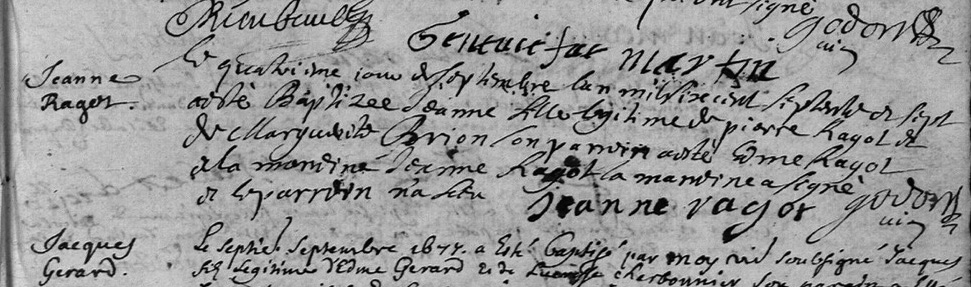 ont signé
Rimbault
godon
Genevie far martin
Jeanne
Ragot.
le quatrieme jour de septembre lan mil six cent septente et sept
a esté Baptizee Jeanne fille legitime de pierre Ragot et
de Marguerite Brion son parrin a esté Edme Ragot
et la marrine Jeanne Ragot la marrine a signé
et le parrein na sceu
Jeanne ragot
godon
Jacques
Gerard.
Le septie. septembre 1677. a esté baptisé par moy curé soubsigné Jacques
fils legitime d'Edme Gerard et de charbonnier son parrein a